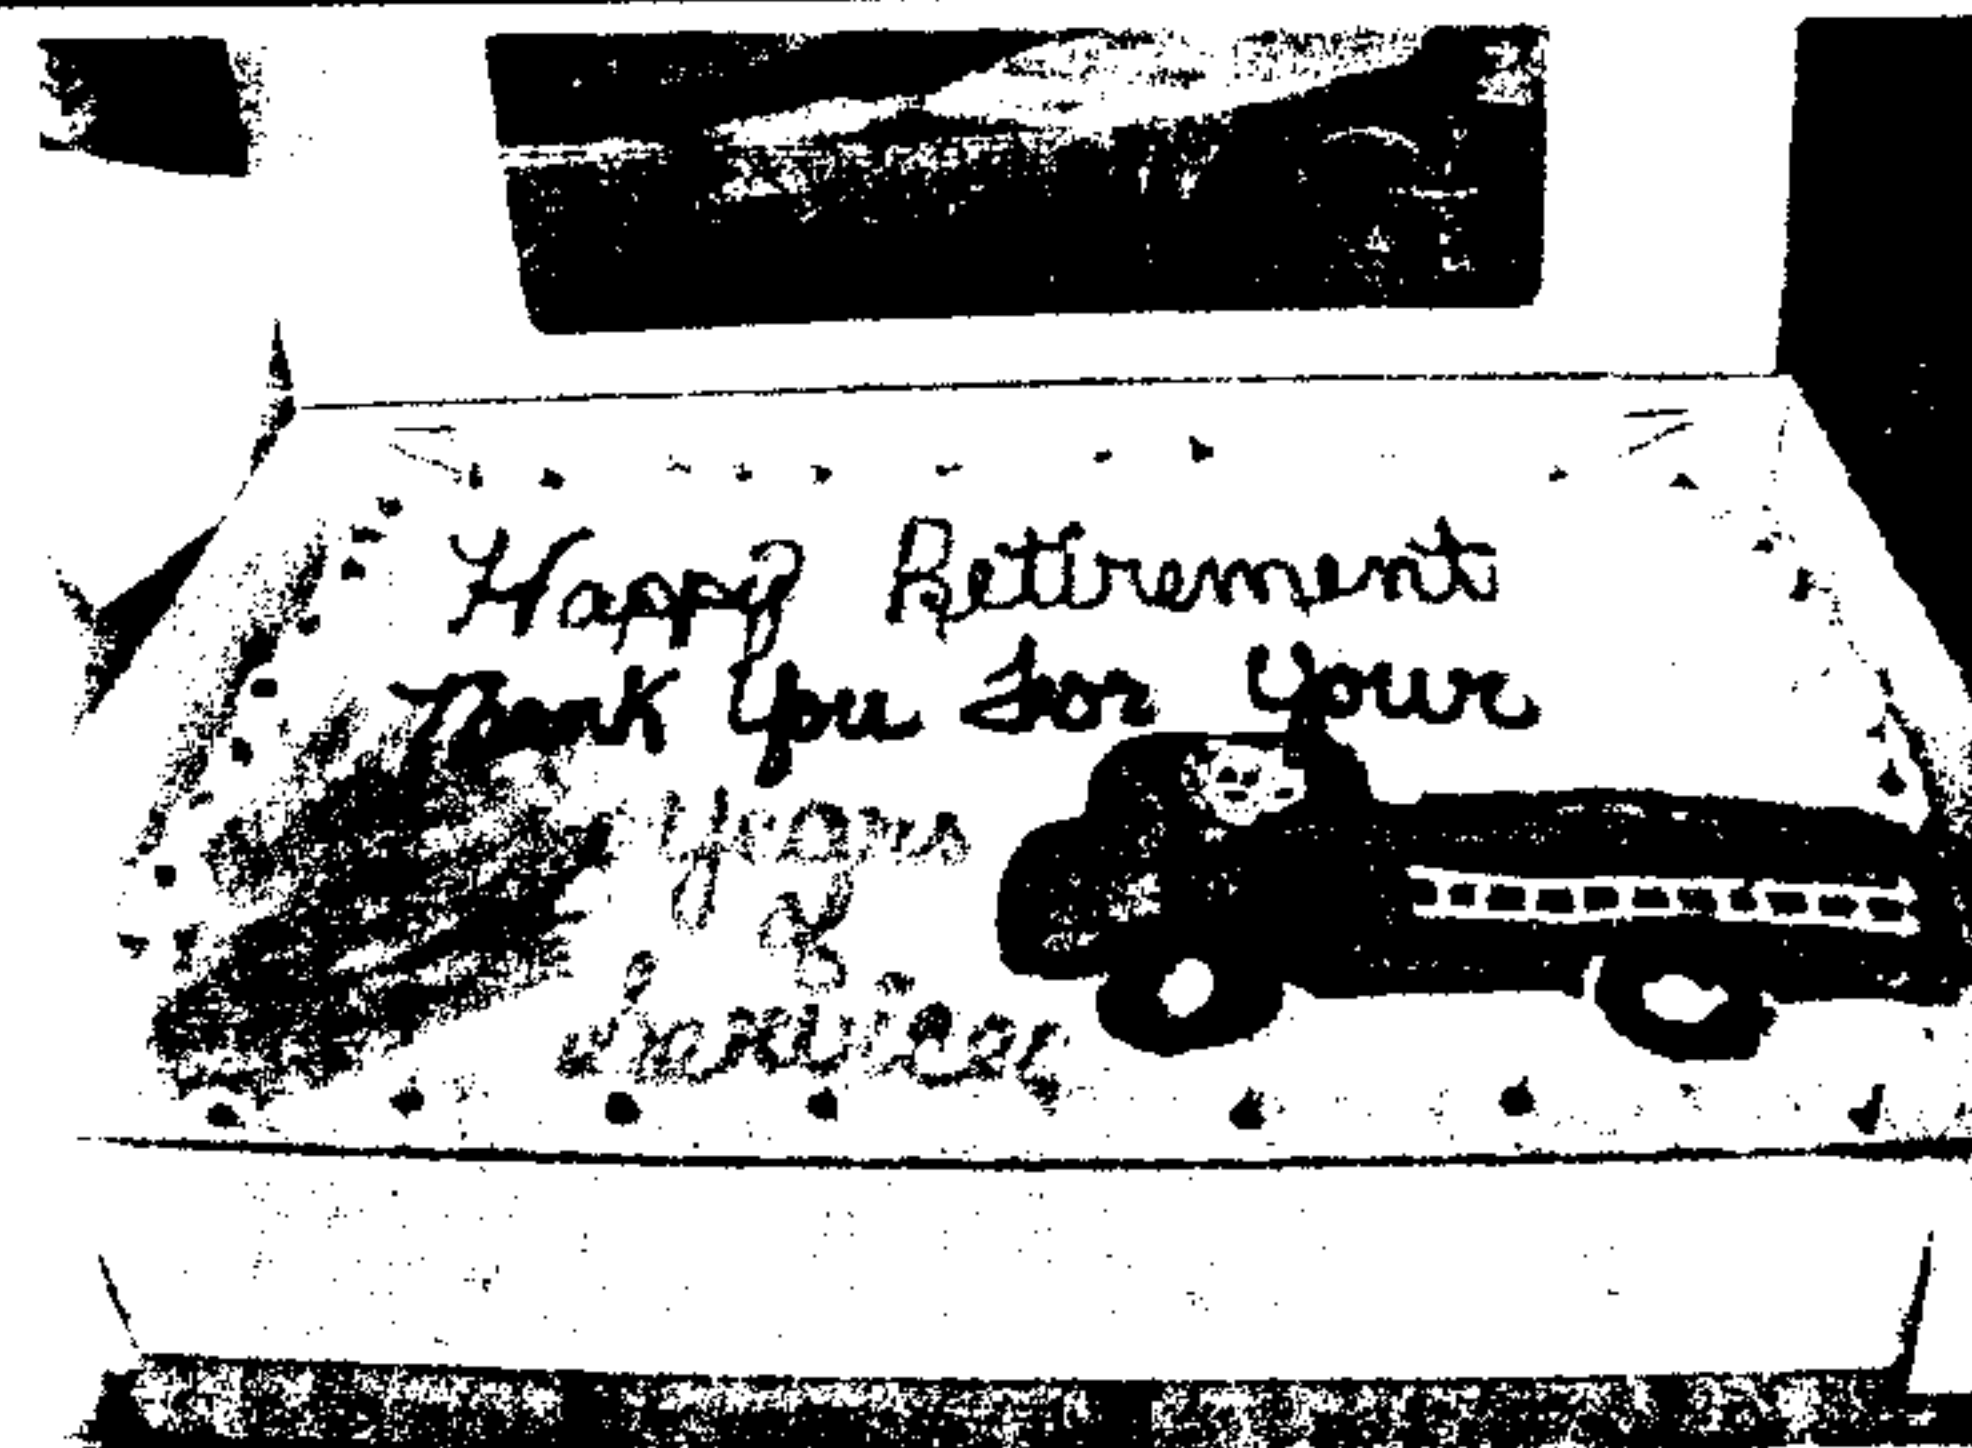 Happy Retirement
Thank You For Your
Years
of
Service